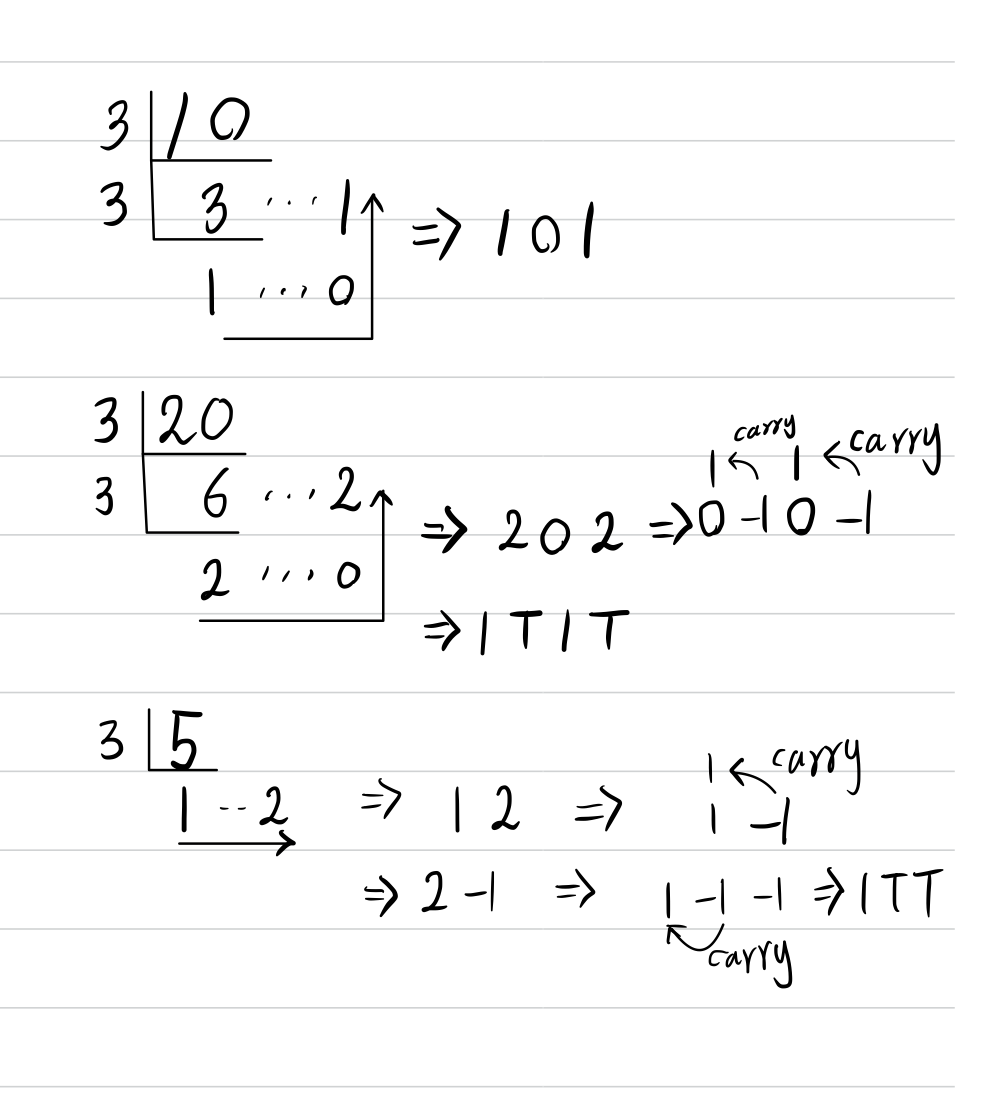 3 | 10
3 | 3 ... 1 ⇒ 101
1 ... 0
3 | 20
carry
1 ← 1 ← carry
3 | 6 ... 2 ⇒ 202 ⇒ 0 -1 0 -1
2 ... 0
⇒ 1T1T
3 | 5
1 ← carry
1 ... 2 ⇒ 12 ⇒ 1 -1
⇒ 2 -1 ⇒ 1 -1 -1 ⇒ 1TT
carry